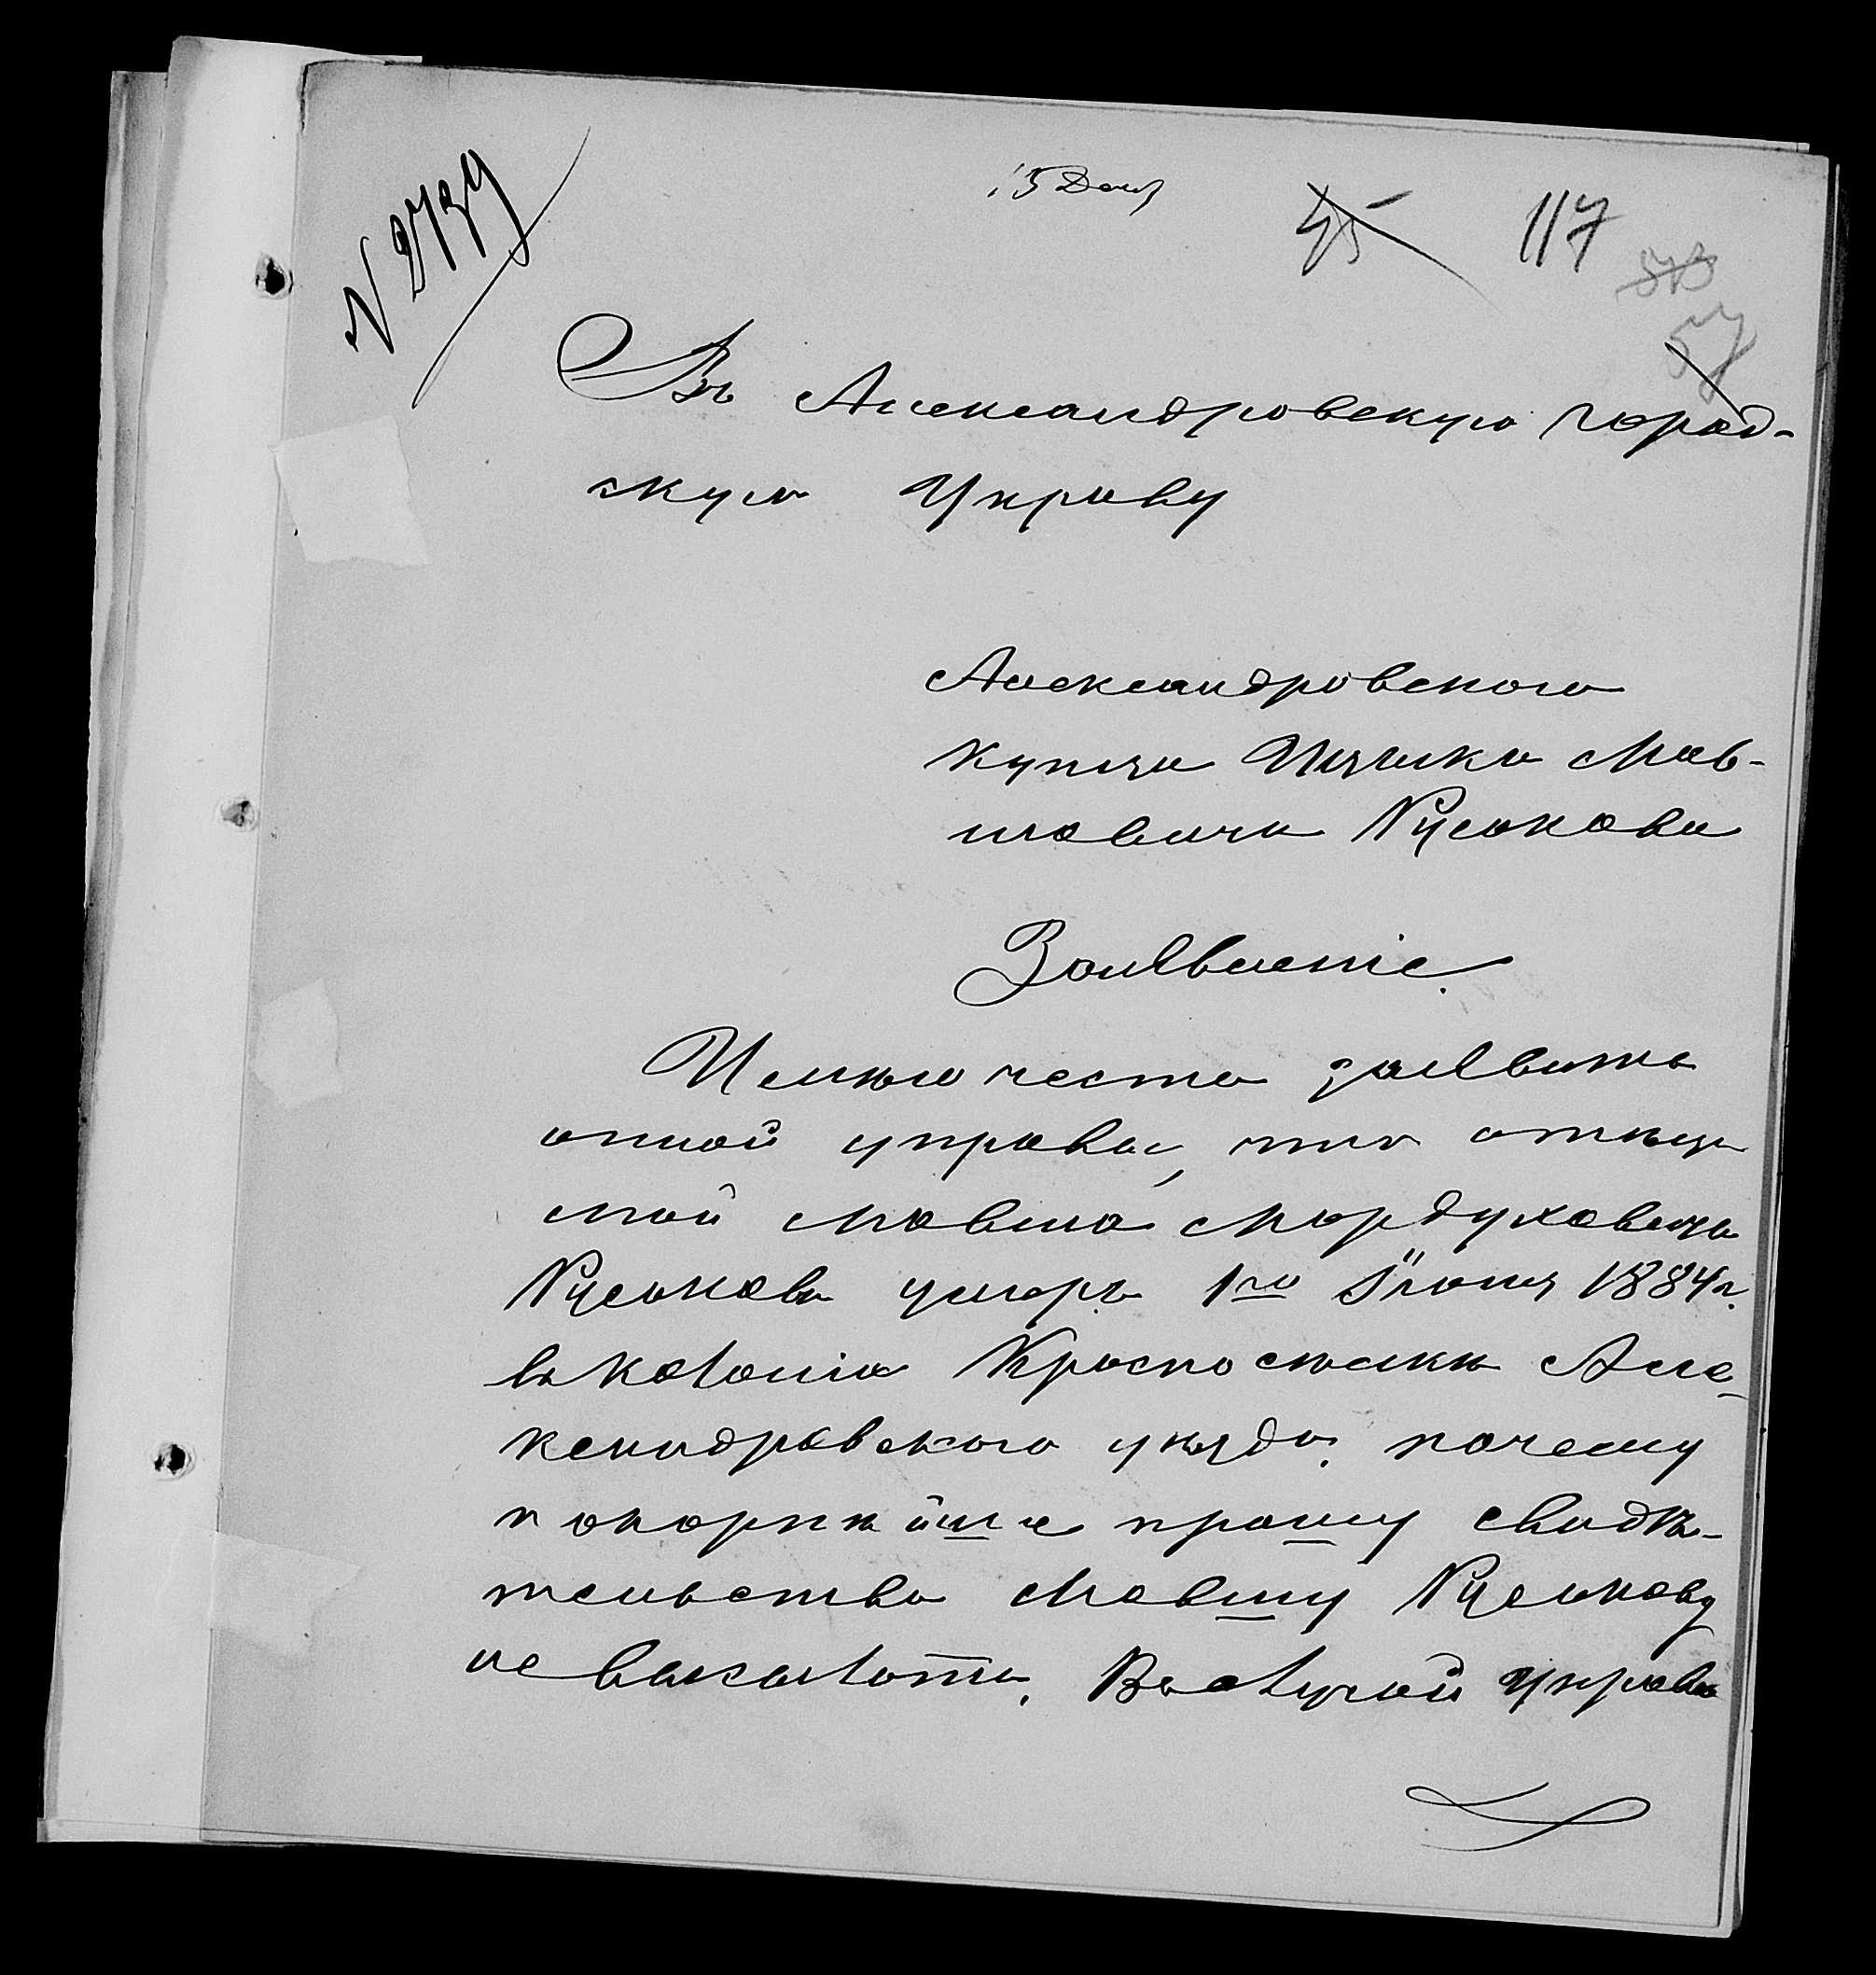 N 2739
15 Дек
45
117
57
Въ Александровскую город-
скую Управу
Александровского
купца Ицика Мов-
шовича Русакова
Заявленіе.
Имѣю честь заявить
оной управѣ, что отецъ
мой Мовша Мордуховичъ
Русаковъ умеръ 1го Іюня 1884 г.
въ колоніи Краснос Але-
ксандровского уѣзда. почему
покорнѣйше прошу свидѣ-
тельства Мовшу Русакову
не высылать. Въ случай Управа